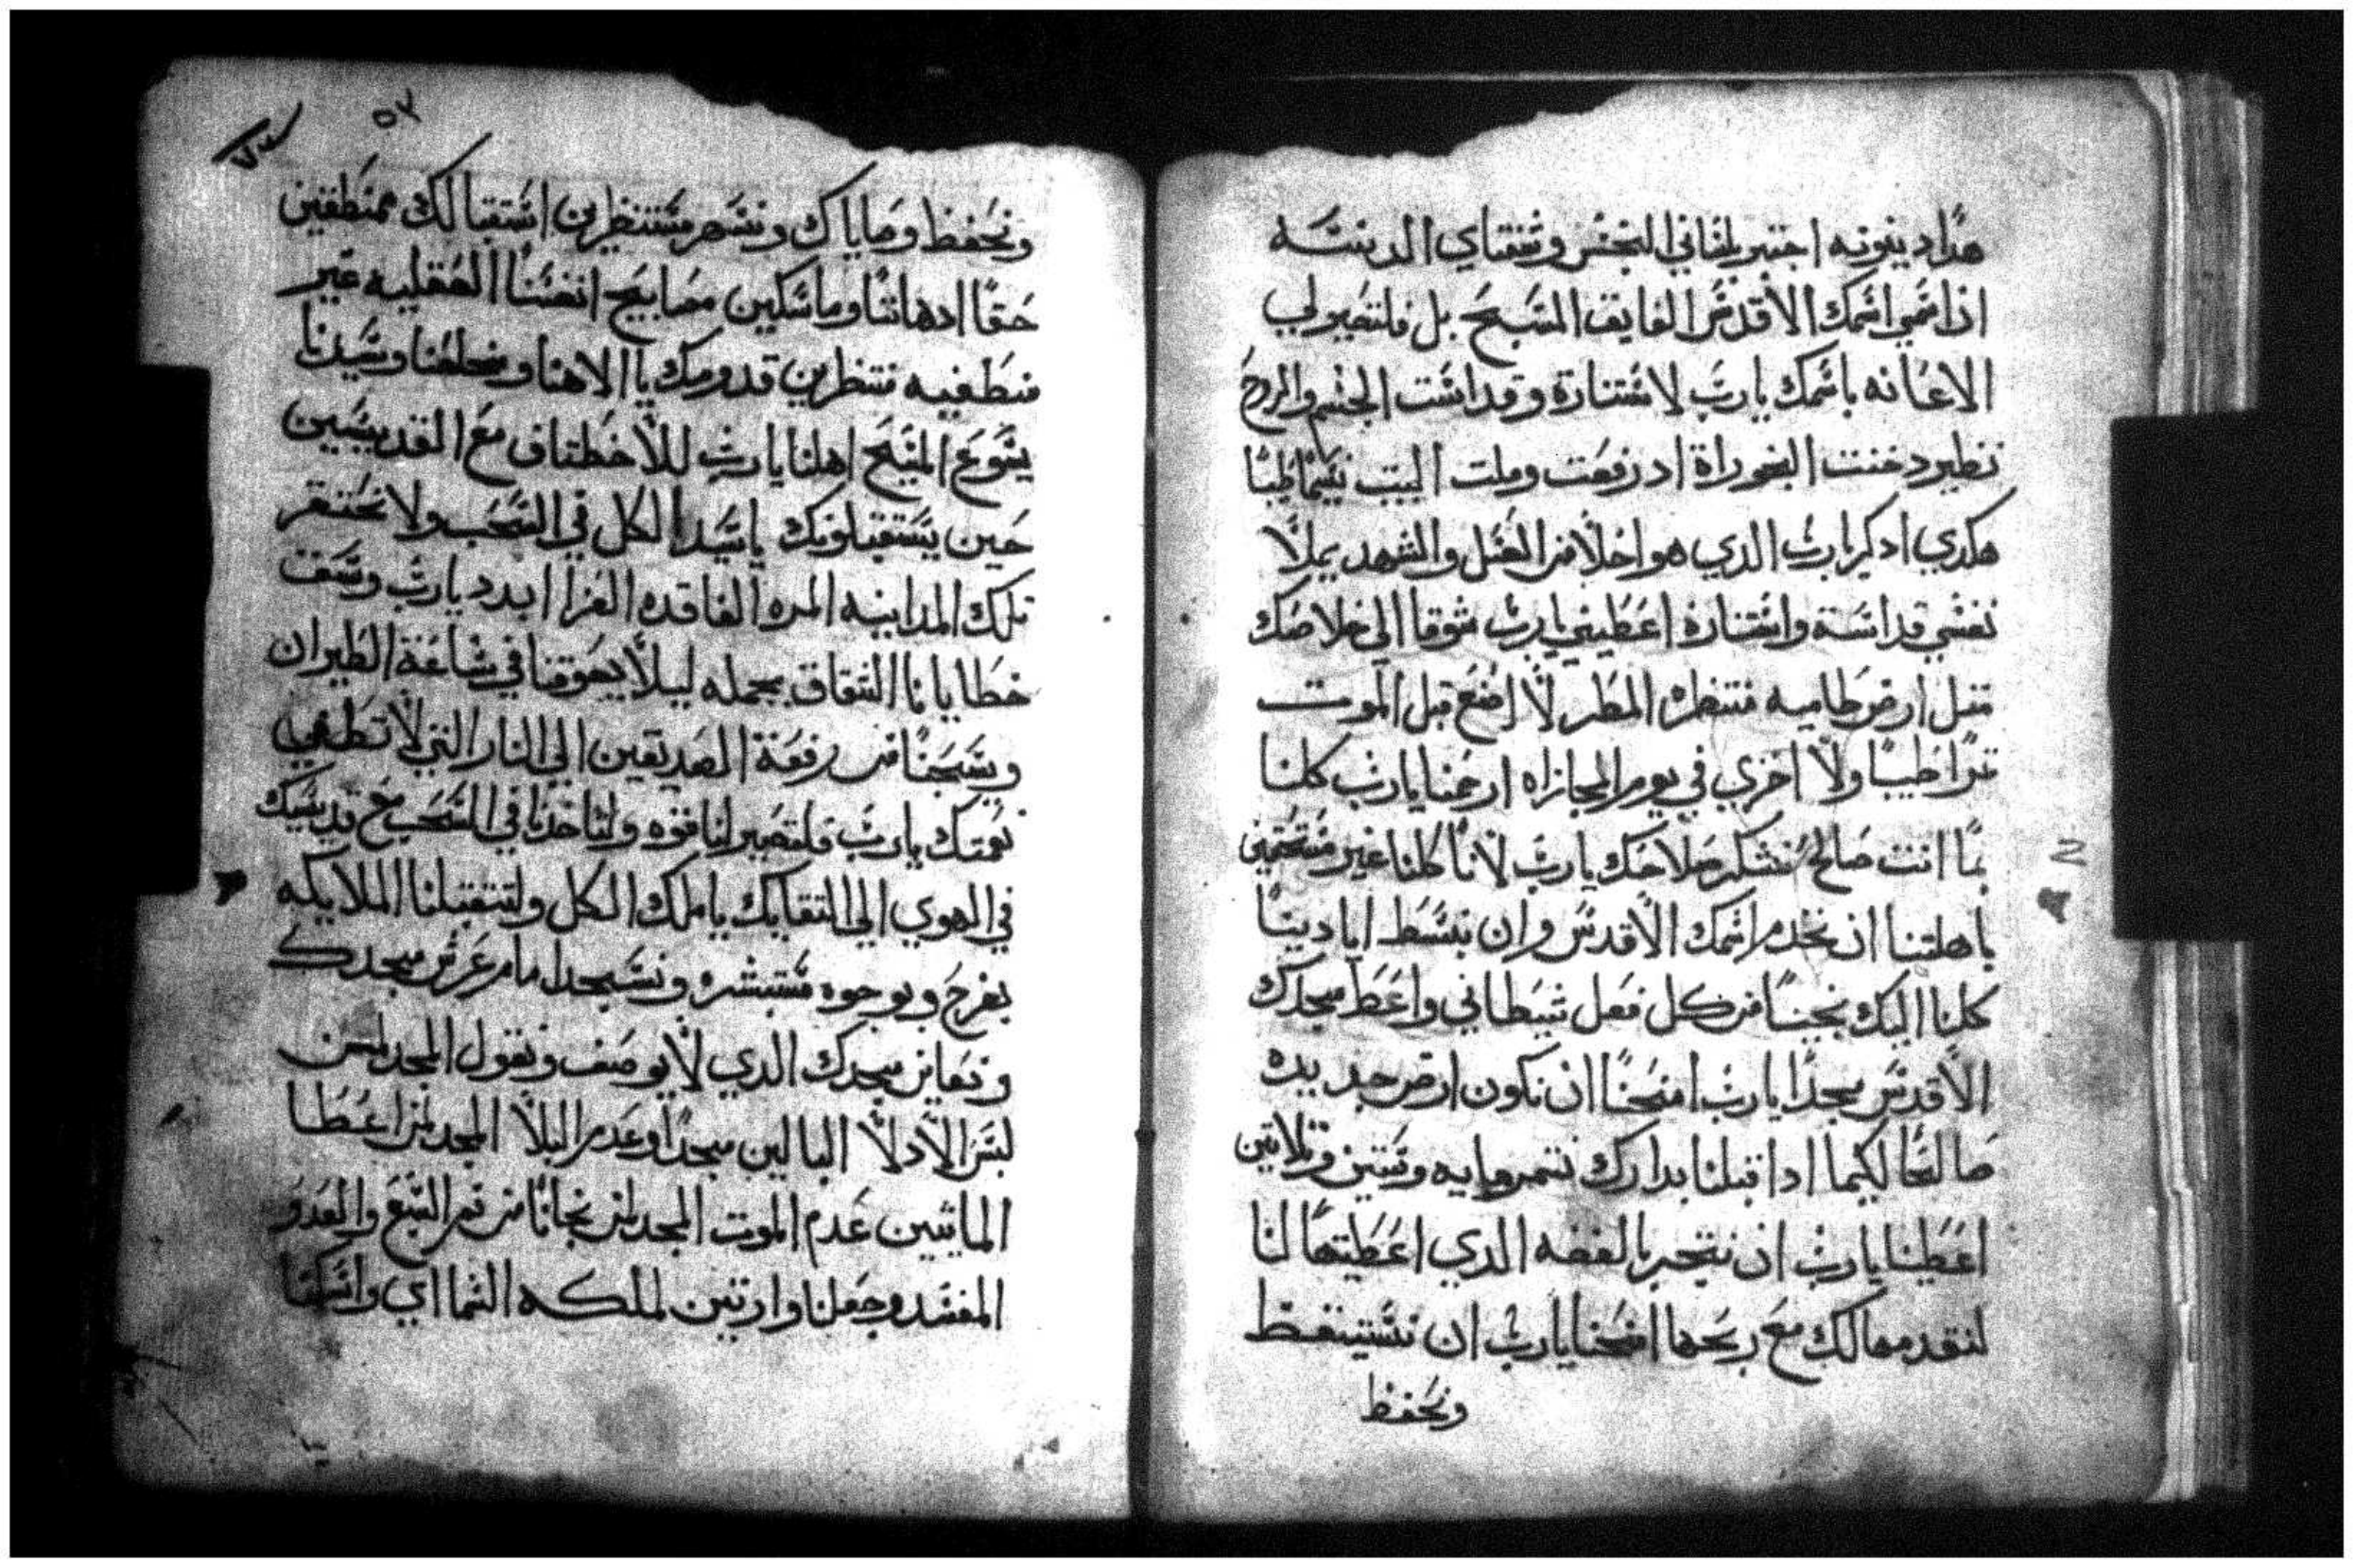 هذا دينونه اجتبر بلخاني النجس وشفتاي الدنسه
اذا اسمي اسمك الاقدس الفايق المسبح بل فلتصير لي
الاعانه باسمك يارب لاستنارة وقداست الجسم والروح
نظير دخنت البخوراة اد رفعت وملت البيت نسيما طيبا
هكدي ادكر يارب الدي هو احلا من العسل والشهد يملا
نفسي قداسة واستنارة اعطيني يارب شوقا الي خلاصك
متل ارض ظاميه منتظره المطر لا اضع قبل الموت
ترا طيبا ولا اخزي في يوم المجازاه ارحمنا يارب كلنا
بما انت صالح نشكر صلاحك يارب لانا كلنا غير مستحقين
باهلتنا ان نخدم اسمك الاقدس وان نبسط ايادينا
كلنا اليك نجينا من كل فعل شيطاني واعط مجدك
الاقدس مجدا يارب امنحنا ان نكون ارض جديده
صالحا لكيما ادا قبلنا بدارك نتمر مايه وستين وتلاتين
اعطينا يارب ان نتجر بالفضه الدي اعطيتها لنا
لنقدمها لك مع ربحها امنحنا يارب ان نستيقظ
ونحفظ
٥٧
ونحفظ وصاياك ونسهر مستنظرين استقبالك ممنطقين
حقا ادهاننا وماسكين مصابيح انفسنا العقليه غير
منطفيه منتظرين قدومك يا الاهنا ومخلصنا وسيدنا
يسوع المسيح اهلنا يارب للاختطاف مع القديسين
حين يستقبلونك ياسيد الكل في السحب ولا نحتقر
تلك المداينه المره الفاقده العزا ابدد يارب وسقت
خطايانا الشقاق بجمله ليلا يعوقنا في ساعة الطيران
ويسحبنا من رفقة الصديقين الي النار التي لا تطفي
نعمتك يارب فلتصير لنا قوه ولتاخدنا في السحب مع قديسيك
في الهوي الي التقايك ياملك الكل ولتتقبلنا الملايكه
بفرح وبوجوه مستبشره ونسجد امام عرش مجدك
ونعاين مجدك الدي لا يوصف ونقول المجد لمن
لبس الادلا البالين مجدا وعدم البلا المجد لمن اعطا
المايتين عدم الموت المجد لمن نجانا من فم السبع والعدو
المفسد وجعلنا وارتين لملكه السما اي واسكنا